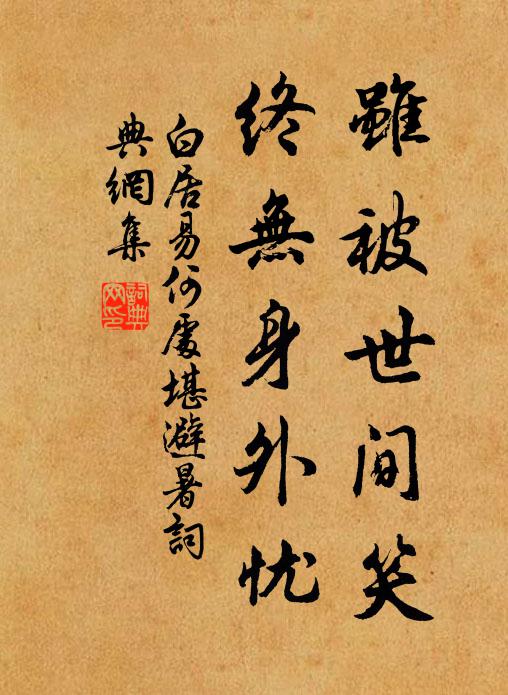 雖被世间笑
終無身外忧
白居易何處堪避暑詞
典網集
詞典
网印